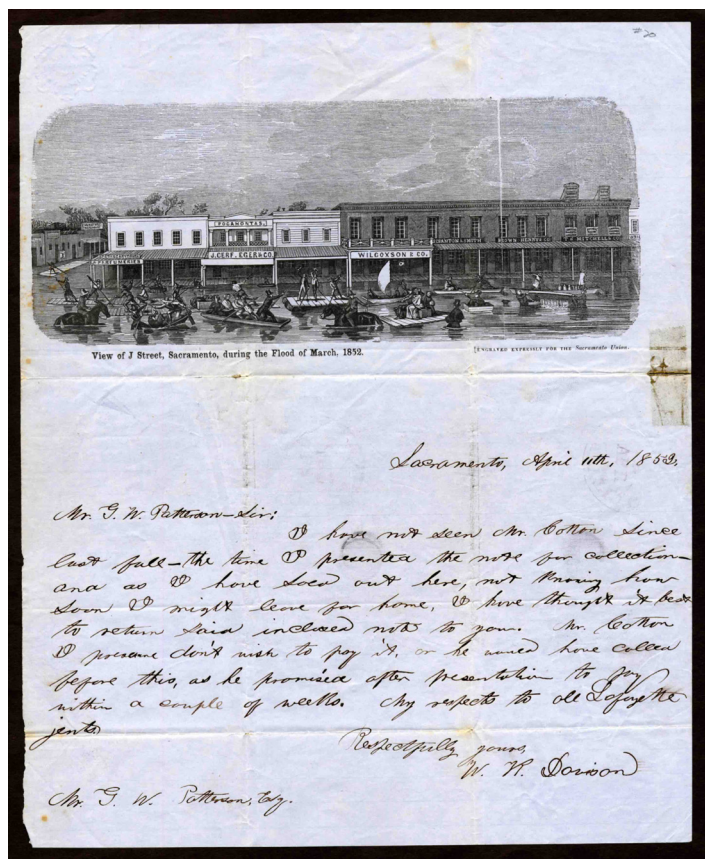 POCAHONTAS.
J. CERF, EGER & CO.
WILCOXSON & CO.
STANTON & SMITH
BROWN HENRY & CO.
MITCHELL
View of J Street, Sacramento, during the Flood of March, 1852.
[ENGRAVED EXPRESSLY FOR THE Sacramento Union.
Sacramento, April 11th, 1853.
Mr. G. W. Patterson—Sir:
I have not seen Mr. Cotton since
last fall—the time I presented the note for collection—
and as I have sold out here, not knowing how
soon I might leave for home, I have thought it best
to return said inclosed note to you. Mr. Cotton
I presume don't wish to pay it, or he would have called
before this, as he promised after presentation to pay
within a couple of weeks. My respects to all Lafayette
jents
Respectfully yours,
W. R.
Mr. G. W. Patterson, Esq.